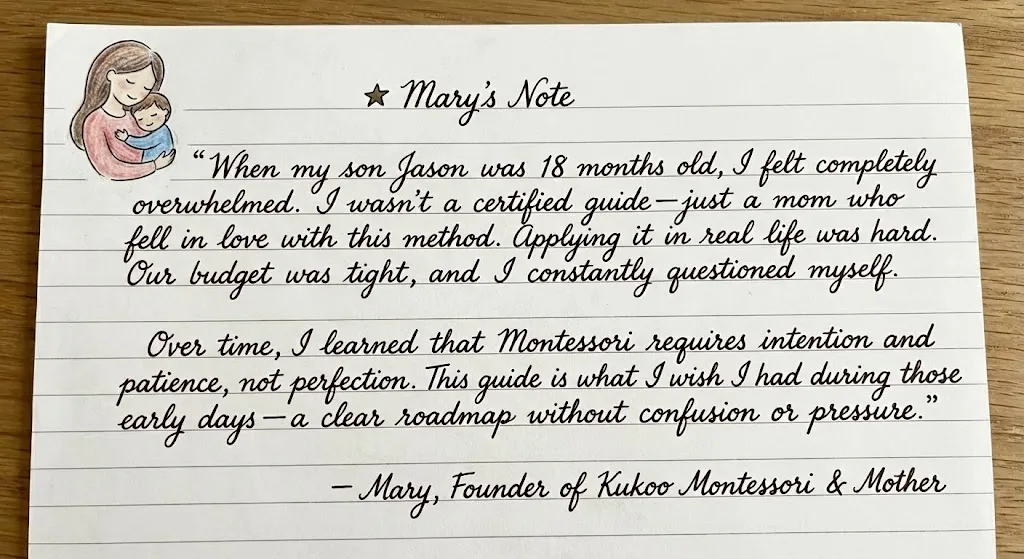 ★ Mary's Note
“When my son Jason was 18 months old, I felt completely
overwhelmed. I wasn't a certified guide—just a mom who
fell in love with this method. Applying it in real life was hard.
Our budget was tight, and I constantly questioned myself.
Over time, I learned that Montessori requires intention and
patience, not perfection. This guide is what I wish I had during those
early days—a clear roadmap without confusion or pressure.”
— Mary, Founder of Kukoo Montessori & Mother